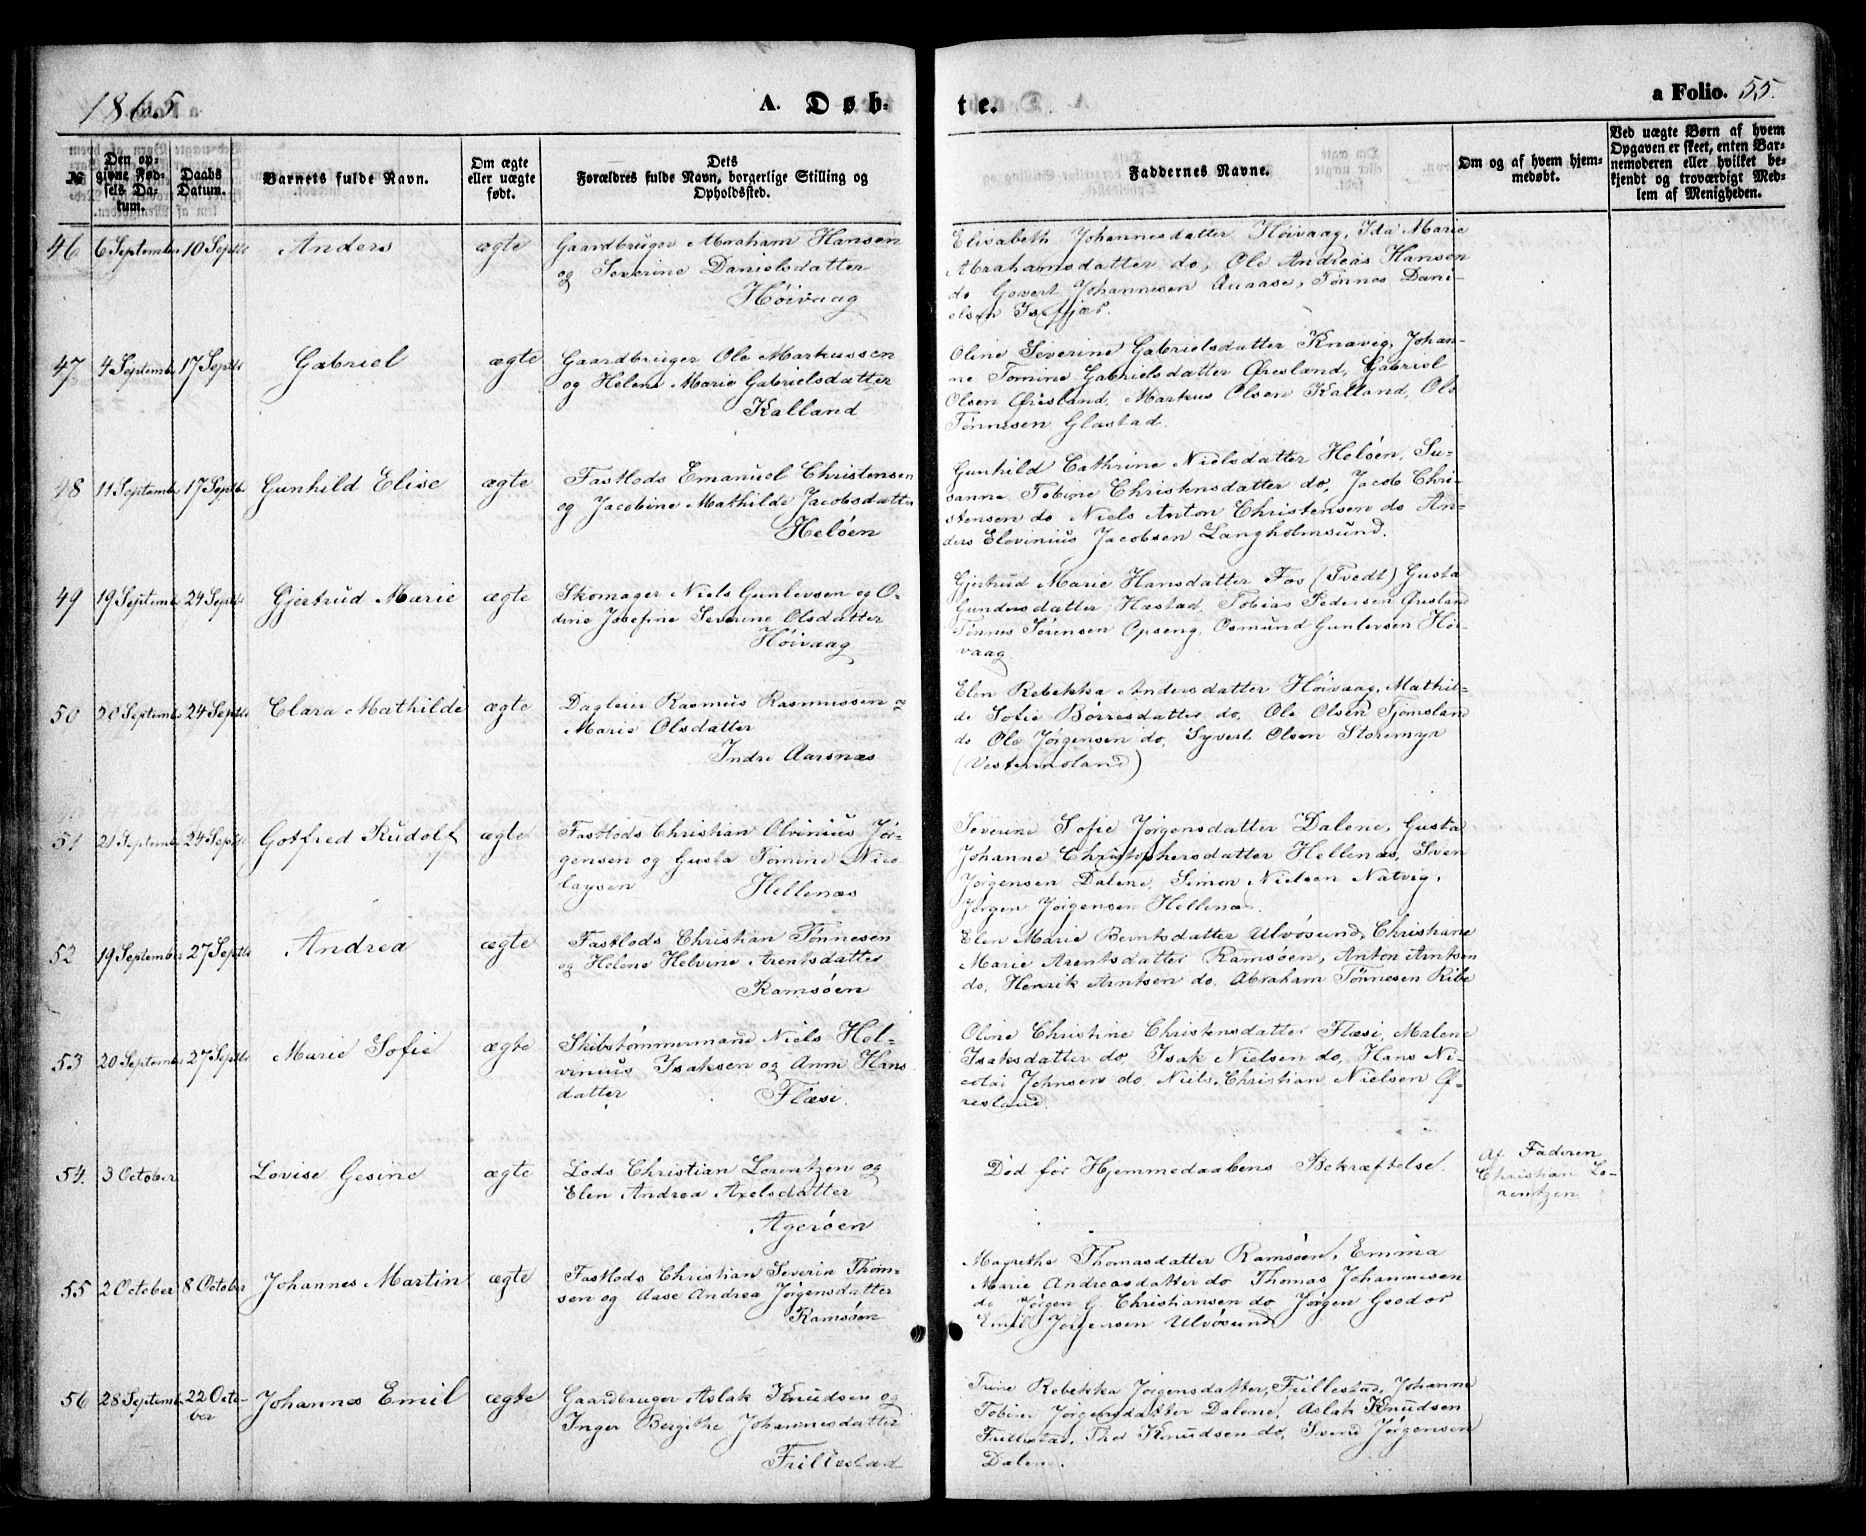 1865 A. Døb- te. a Folio. 55.
№ Den opgivne Fødsels Datum. Daabs Datum. Barnets fulde Navn. Om ægte eller uægte født. Dets Forældres fulde Navn, borgerlige Stilling og Opholdssted. Faddernes Navne. Om og af hvem hjemmedøbt. Ved uægte Børn af hvem Opgaven er skeet, enten Barnemoderen eller hvilket bekjendt og troværdigt Medlem af Menigheden.
46 6 September 10 Septbr Anders ægte Gaardbruger Abraham Hansen
og Severine Danielsdatter
Höivaag
Elisabeth Johannesdatter Höivaag, Ida Marie
Abrahamsdatter do, Ole Andreas Hansen
do Govert Johannesen Auaase, Tønnes Dani-
elsen Isefjær.
47 4 September 17 Septbr Gabriel ægte Gaardbruger Ole Markussen
og Helene Marie Gabrielsdatter
Kalland
Oline Severine Gabrielsdatter Knavig, Johan-
ne Tomine Gabrielsdatter Øresland, Gabriel
Olsen Øresland, Markus Olsen Kalland, Ole
Tönnesen Glastad.
48 11 September 17 Septbr Gunhild Elise ægte Fastlods Emanuel Christensen
og Jacobine Mathilde Jacobsdatter
Helöen
Gunhild Cathrine Nielsdatter Helöen, Su-
sanne Tobine Christensdatter do, Jacob Chri-
stensen do Niels Anton Christensen do An-
ders Elovinius Jacobsen Langholmsund.
49 19 Septemb 24 Septbr Gjertrud Marie ægte Skomager Niels Gunlevsen og O-
dine Josefine Severine Olsdatter
Höivaag
Gjertrud Marie Hansdatter Fos (Tvedt) Gusta
Gundersdatter Hæstad, Tobias Pedersen Øresland
Tønnes Sørensen Opseng, Osmund Gunlevsen Höi-
vaag
50 20 September 24 Septbr Clara Mathilde ægte Dagleier Rasmus Rasmussen og
Marie Olsdatter
Indre Aarsnæs
Elen Rebekka Andersdatter Höivaag, Mathil-
de Sofie Børresdatter do, Ole Olsen Tjømsland
do Ole Jørgensen do, Syvert Olsen Storemyr
(Vestermoland)
51 21 September 24 Septbr Gotfred Rudolf ægte Fastlods Christian Olvinius Jör-
gensen og Gusta Tomine Nico
laysen Hellenæs
Severine Sofie Jörgensdatter Dalene, Gusta
Johanne Christophersdatter Hellenæs, Sven
Jörgensen Dalene, Simon Nielsen Natvig,
Jörgen Jörgensen Hellenæs.
52 19 September 27 Septbr Andrea ægte Fastlods Christian Tönnesen
og Helene Helvine Arentsdatter
Ramsöen
Elen Marie Berntsdatter Ulvösund, Christiane
Marie Arentsdatter Ramsöen, Anton Arntsen
do, Henrik Arntsen do, Abraham Tönnesen Ribe
53 20 September 27 Septbr Marie Sofie ægte Skibstömmermand Niels Hel-
vinius Isaksen og Anne Hans
datter Flæsi.
Oline Christine Christensdatter Flæsi, Malene
Isaksdatter do, Isak Nielsen do, Hans Ni-
colai Johnsen do, Niels Christian Nielsen Ø-
resland.
54. 3 October Lovise Gesine ægte Lods Christian Lorentzen og
Elen Andrea Axelsdatter
Agerøen
Död för Hjemmedaabens Bekræftelse.
Af Faderen
Christian Lo-
rentzen
55 2 October 8 October Johannes Martin ægte Fastlods Christian Severin Thom-
sen og Aase Andrea Jörgensdatter
Ramsöen
Magrethe Thomasdatter Ramsöen, Emma
Marie Andreasdatter do Thomas Johannesen
do Jörgen G Christiansen do Jörgen Geodor
Emil Jörgensen Ulvösund
56 28 September 22 Octo-
ber
Johannes Emil ægte Gaardbruger Aslak Knudsen og
Inger Bergithe Johannesdatter
Trillestad
Trine Rebekka Jörgensdatter, Trillestad, Johanne
Tobine Jörgensdatter Dalene, Aslak Knudsen
Trillestad, Thor Knudsen do, Svend Jörgensen
Dalene.